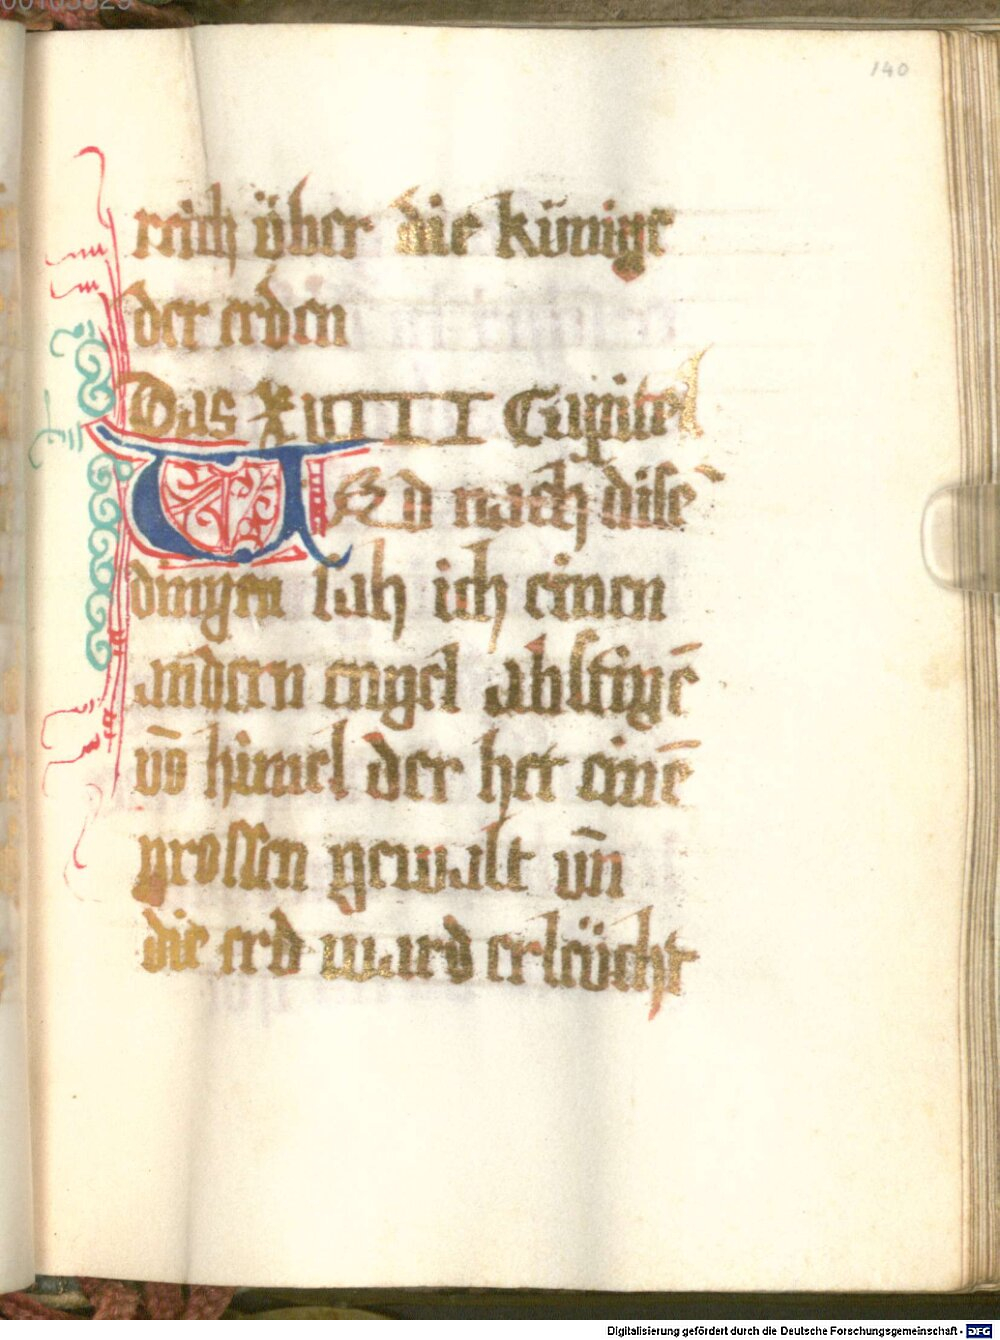 140
reich über die künige
der erden
Das XVIIII Capitel
UNd nach disē
dingen sah ich einen
andern engel absteigē
vō himel der het einē
grossen gewalt vn̄
die erd ward erleücht
Digitalisierung gefördert durch die Deutsche Forschungsgemeinschaft - DFG